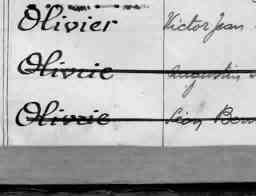 Olivier Victor Jean
Olivrie Augustin
Olivrie Léon